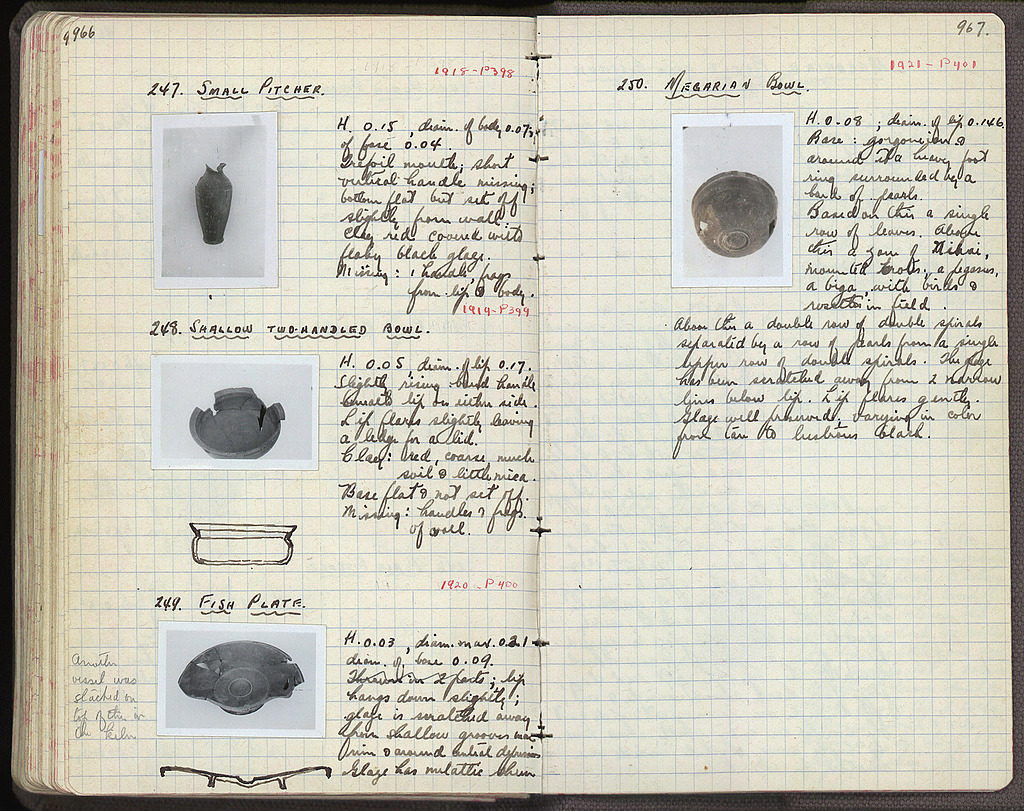 9966
1918-P398
247. SMALL PITCHER.
H. 0.15, diam. of body 0.07
of base 0.04.
Trefoil mouth; short
vertical handle missing;
bottom flat but set off
slightly from wall.
Clay red covered with
flaky black glaze.
Missing: 1 handle, frags
from lip & body.
1919-P399
248. SHALLOW TWO-HANDLED BOWL.
H. 0.05, diam. of lip 0.17.
Slightly rising band handle
beneath lip on either side.
Lip flares slightly leaving
a ledge for a lid.
Clay: red, coarse, much
soil & little mica.
Base flat & not set off.
Missing: handles & frags.
of wall.
1920-P400
249. FISH PLATE.
H. 0.03, diam. max. 0.21
diam. of base 0.09.
Thrown in 2 parts; lip
hangs down slightly;
glaze is scratched away
from shallow grooves
rim & around central depression
Glaze has metallic sheen
Another
vessel was
stacked on
top of this in
the kiln
967.
1921-P401
250. MEGARIAN BOWL.
H. 0.08; diam. of lip 0.146
Base: gorgoneion &
around it a heavy foot
ring surrounded by a
band of pearls.
Based on this a single
row of leaves. Above
this a zone of Nikai,
mounted Erotes, a pegasus,
a biga, with birds &
rosettes in field.
Above this a double row of double spirals
separated by a row of pearls from a single
upper row of double spirals. The glaze
has been scratched away from 2 narrow
lines below lip. Lip flares gently.
Glaze well preserved, varying in color
from tan to lustrous black.